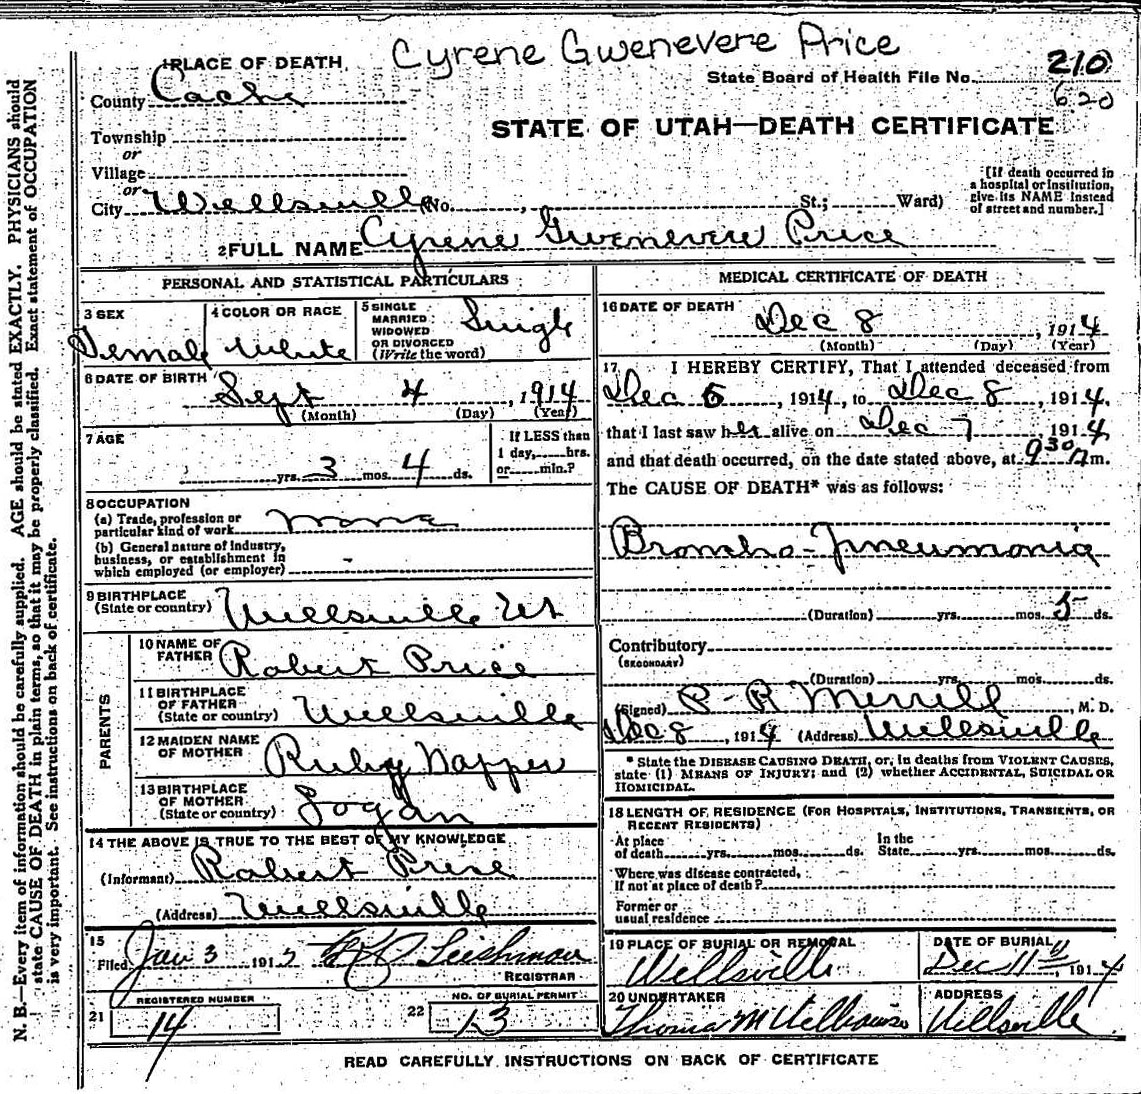 Cyrene Gwenevere Price
1 PLACE OF DEATH
State Board of Health File No. 210
620
County Cache
STATE OF UTAH—DEATH CERTIFICATE
Township
or
Village
or
City Wellsville (No. , St.; Ward)
[If death occurred in a hospital or institution, give its NAME instead of street and number.]
2 FULL NAME Cyrene Gwenevere Price
PERSONAL AND STATISTICAL PARTICULARS
3 SEX
Female
4 COLOR OR RACE
White
5 SINGLE MARRIED WIDOWED OR DIVORCED (Write the word)
Single
6 DATE OF BIRTH
Sept 4, 1914
(Month) (Day) (Year)
7 AGE
yrs. 3 mos. 4 ds.
If LESS than 1 day, hrs. or min.?
8 OCCUPATION
(a) Trade, profession or particular kind of work none
(b) General nature of industry, business, or establishment in which employed (or employer) -
9 BIRTHPLACE
(State or country) Wellsville Ut
PARENTS
10 NAME OF FATHER Robert Price
11 BIRTHPLACE OF FATHER
(State or country) Wellsville
12 MAIDEN NAME OF MOTHER Ruby Napper
13 BIRTHPLACE OF MOTHER
(State or country) Logan
14 THE ABOVE IS TRUE TO THE BEST OF MY KNOWLEDGE
(Informant) Robert Price
(Address) Wellsville
15
Filed Jan 3 1915 Leishman
REGISTRAR
REGISTERED NUMBER
21 14
NO. OF BURIAL PERMIT
22 13
MEDICAL CERTIFICATE OF DEATH
16 DATE OF DEATH
Dec 8, 1914
(Month) (Day) (Year)
17 I HEREBY CERTIFY, That I attended deceased from
Dec 6, 1914, to Dec 8, 1914,
that I last saw her alive on Dec 7 1914,
and that death occurred, on the date stated above, at 930 m.
The CAUSE OF DEATH* was as follows:
Broncho-Pneumonia
(Duration) yrs. mos. 5 ds.
Contributory
(SECONDARY)
(Duration) yrs. mos. ds.
(Signed) P-R Merrill, M.D.
Dec 8, 1914 (Address) Wellsville
* State the DISEASE CAUSING DEATH, or, in deaths from VIOLENT CAUSES, state (1) MEANS OF INJURY; and (2) whether ACCIDENTAL, SUICIDAL OR HOMICIDAL.
18 LENGTH OF RESIDENCE (FOR HOSPITALS, INSTITUTIONS, TRANSIENTS, OR RECENT RESIDENTS)
At place of death yrs. mos. ds. In the State yrs. mos. ds.
Where was disease contracted, If not at place of death?
Former or usual residence
19 PLACE OF BURIAL OR REMOVAL
Wellsville
DATE OF BURIAL
Dec 11, 1914
20 UNDERTAKER
Thomas M
ADDRESS
Wellsville
READ CAREFULLY INSTRUCTIONS ON BACK OF CERTIFICATE
N. B.—Every item of information should be carefully supplied. AGE should be stated EXACTLY. PHYSICIANS should
state CAUSE OF DEATH in plain terms, so that it may be properly classified. Exact statement of OCCUPATION
is very important. See instructions on back of certificate.